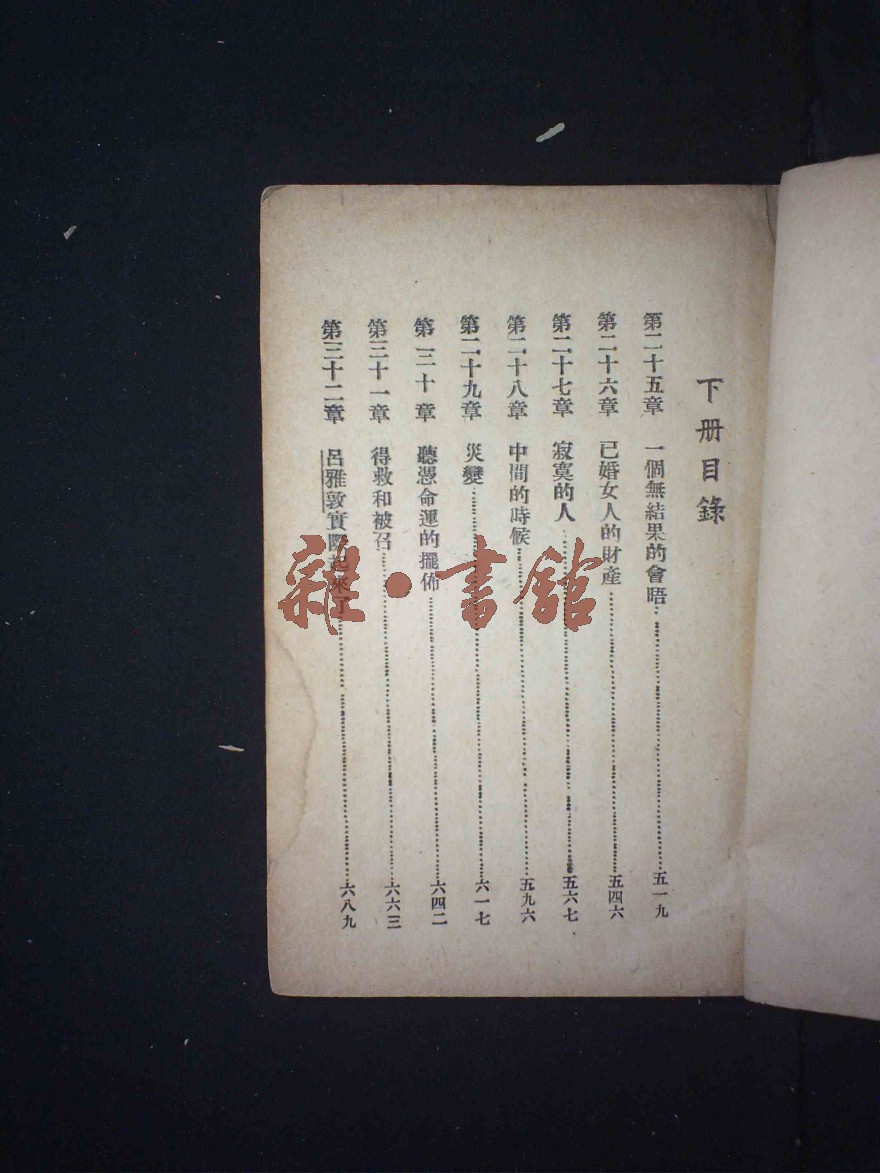 下册目錄
第二十五章 一個無結果的會晤……五一九
第二十六章 已婚女人的財產……五四六
第二十七章 寂寞的人……五六七
第二十八章 中間的時候……五九六
第二十九章 災變……六一七
第三十章 聽憑命運的擺佈……六四二
第三十一章 得救和被召……六六三
第三十二章 呂雅敦實際起來了……六八九
雜·書館